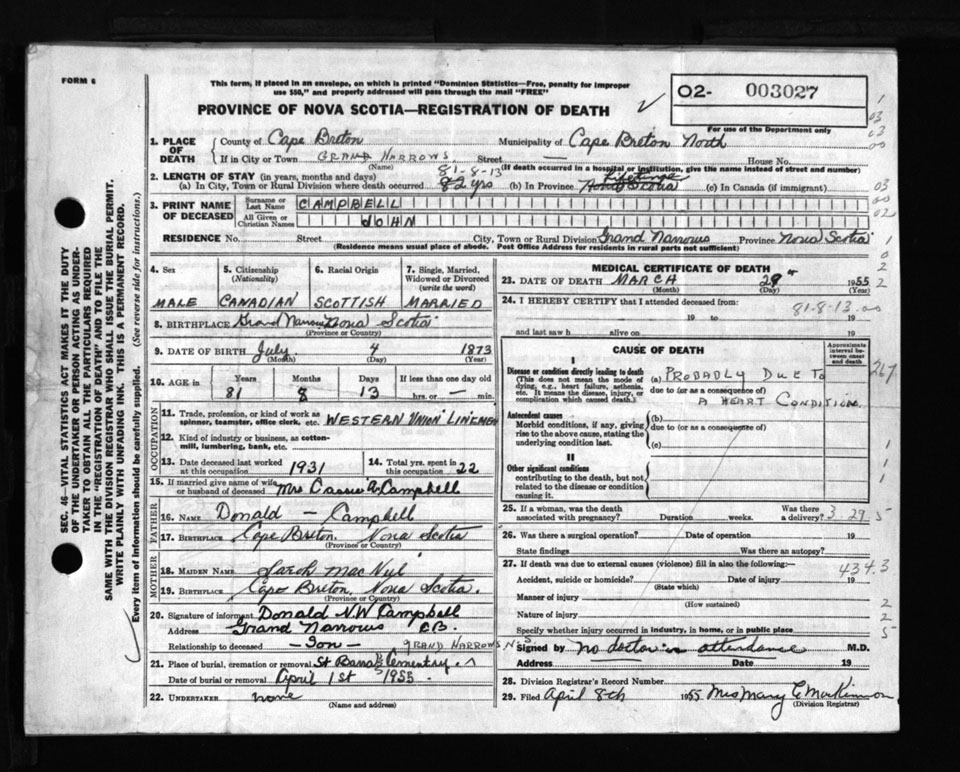 FORM 6
This form, if placed in an envelope, on which is printed "Dominion Statistics—Free, penalty for improper
use $50," and properly addressed will pass through the mail "FREE"
PROVINCE OF NOVA SCOTIA—REGISTRATION OF DEATH
02- 003027
For use of the Department only
1. PLACE OF DEATH County of Cape Breton Municipality of Cape Breton North
If in City or Town GRAND NARROWS Street — House No.
(Name) (If death occurred in a hospital or institution, give the name instead of street and number)
81-8-13
2. LENGTH OF STAY (in years, months and days)
(a) In City, Town or Rural Division where death occurred 82 yrs (b) In Province Lifetime Nova Scotia (c) In Canada (if immigrant)
3. PRINT NAME OF DECEASED Surname or Last Name CAMPBELL
All Given or Christian Names JOHN
RESIDENCE No. Street City, Town or Rural Division Grand Narrows Province Nova Scotia
(Residence means usual place of abode. Post Office Address for residents in rural parts not sufficient)
4. Sex 5. Citizenship (Nationality) 6. Racial Origin 7. Single, Married, Widowed or Divorced (write the word)
MALE CANADIAN SCOTTISH MARRIED
8. BIRTHPLACE Grand Narrows Nova Scotia
(Province or Country)
9. DATE OF BIRTH July 4 1873
(Month) (Day) (Year)
10. AGE IN Years Months Days If less than one day old
81 8 13 hrs. or — min.
OCCUPATION
11. Trade, profession or kind of work as spinner, teamster, office clerk, etc. WESTERN UNION LINEMEN
12. Kind of industry or business, as cotton-mill, lumbering, bank, etc.
13. Date deceased last worked at this occupation 1931 14. Total yrs. spent in this occupation 22
15. If married give name of wife or husband of deceased Mrs Cassie A. Campbell
FATHER
16. NAME Donald — Campbell
17. BIRTHPLACE Cape Breton, Nova Scotia
(Province or Country)
MOTHER
18. MAIDEN NAME Sarah MacNeil
19. BIRTHPLACE Cape Breton, Nova Scotia.
(Province or Country)
20. Signature of informant Donald N.W Campbell
Address Grand Narrows C.B.
Relationship to deceased — Son — GRAND NARROWS N.S
21. Place of burial, cremation or removal St
Date of burial or removal April 1st 1955.
22. UNDERTAKER none
(Name and address)
MEDICAL CERTIFICATE OF DEATH
23. DATE OF DEATH MARCH 29 1955
(Day) (Year)
24. I HEREBY CERTIFY that I attended deceased from:
81-8-13.00
19 to 19
and last saw h alive on 19
CAUSE OF DEATH
Approximate interval between onset and death
I
Disease or condition directly leading to death (a) PROBABLY DUE TO
(This does not mean the mode of dying, e.g., heart failure, asthenia, etc. It means the disease, injury, or complication which caused death.) due to (or as a consequence of)
A HEART CONDITION.
267
Antecedent causes (b)
Morbid conditions, if any, giving rise to the above cause, stating the underlying condition last. due to (or as a consequence of)
(c)
II
Other significant conditions
contributing to the death, but not related to the disease or condition causing it.
25. If a woman, was the death associated with pregnancy? Duration weeks. Was there a delivery? 3 29 5
26. Was there a surgical operation? Date of operation 19
State findings Was there an autopsy?
27. If death was due to external causes (violence) fill in also the following:— 434.3
Accident, suicide or homicide? Date of injury 19
(State which)
Manner of injury
(How sustained)
Nature of injury
Specify whether injury occurred in industry, in home, or in public place
Signed by no doctor in attendance M.D.
Address Date 19
28. Division Registrar's Record Number
29. Filed April 8th 1955 Mrs Mary C MacKinnon
(Division Registrar)
SEC. 46—VITAL STATISTICS ACT MAKES IT THE DUTY
OF THE UNDERTAKER OR PERSON ACTING AS UNDER-
TAKER TO OBTAIN ALL THE PARTICULARS REQUIRED
IN THE "REGISTRATION OF DEATH" AND TO FILE THE
SAME WITH THE DIVISION REGISTRAR WHO SHALL ISSUE THE BURIAL PERMIT.
WRITE PLAINLY WITH UNFADING INK. THIS IS A PERMANENT RECORD.
Every item of Information should be carefully supplied. (See reverse side for instructions.)